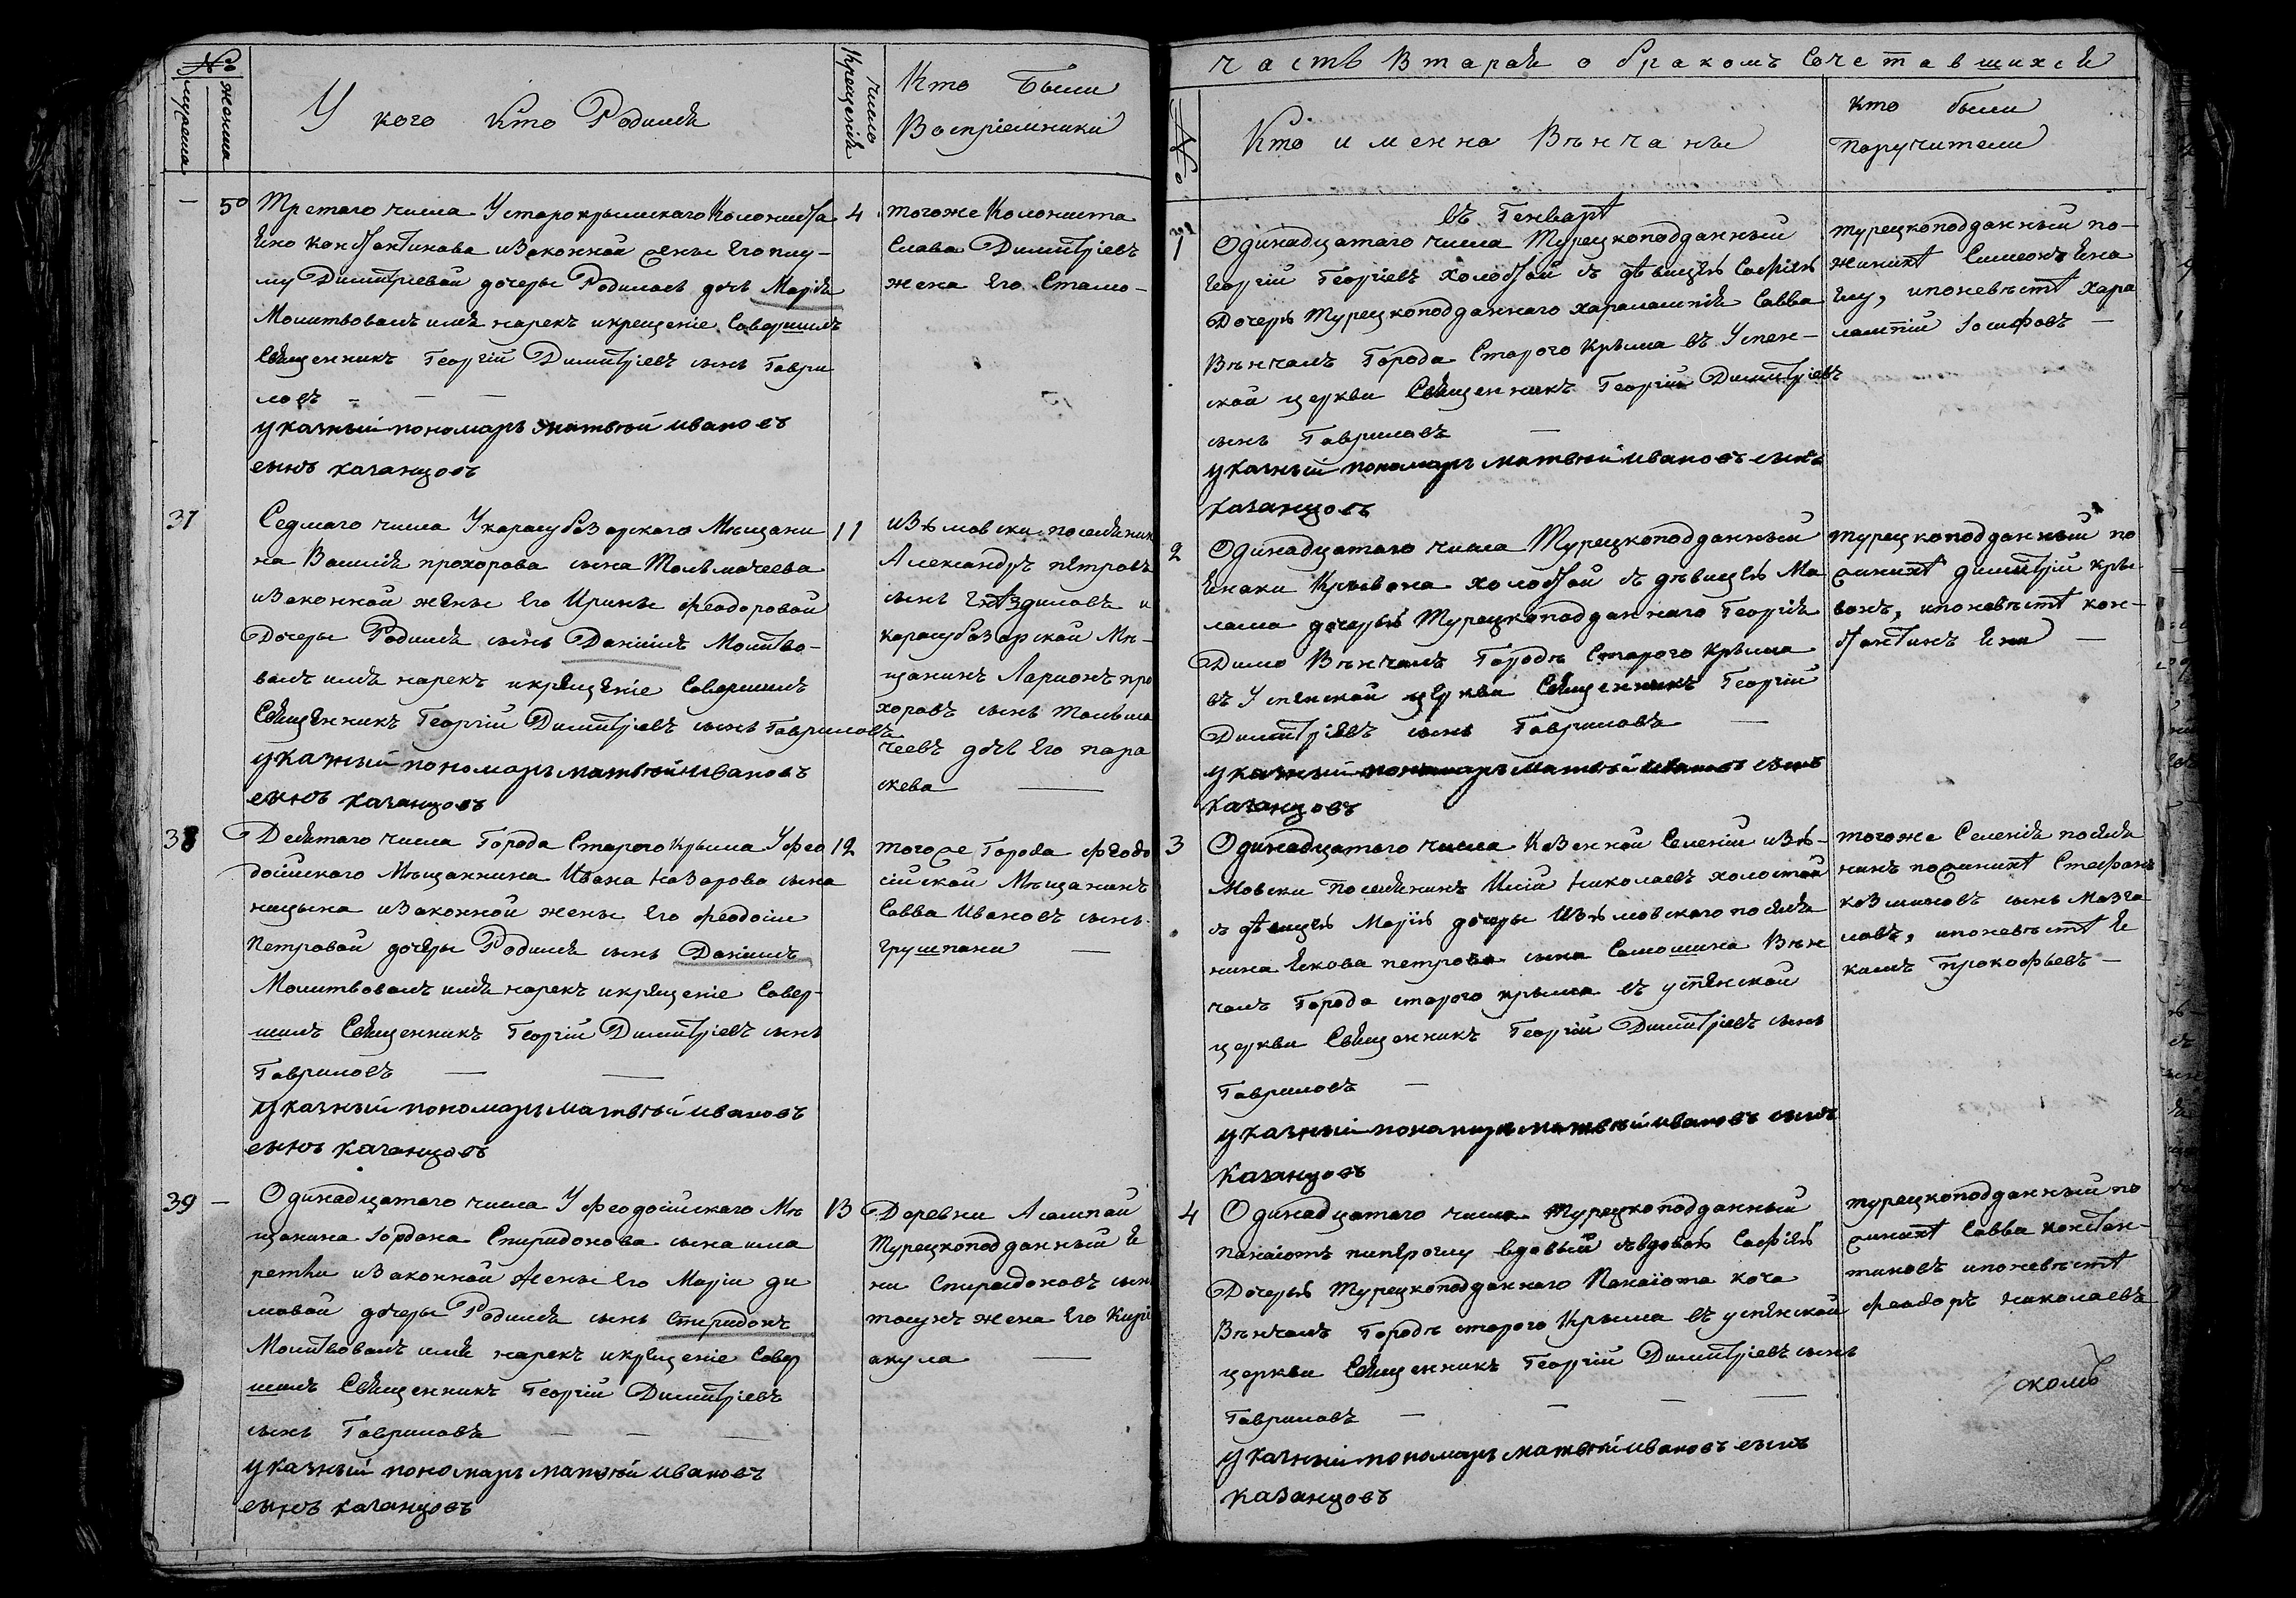 №
мужеска
женска
У кого Кто Родился
число Крещенія
Кто Были
Воспріемники
50
Третаго числа У старокрымскаго Колониста
Яно Константинова изаконной жены Его
Димитріевой дочеры Родилась дочь Марія
Молитвовалъ имя нарекъ икрещеніе Совершилъ
Священникъ Георгій Димитріевъ сынъ Гаври
ловъ
указный пономарь матвѣй ивановъ
сынъ казанцовъ
4
тогоже Колониста
Слава Димитріевъ
жена Его Стамо
37
Седмаго числа Укарасубазарского Мѣщани
на Василія прохорова сына Толѣмачеева
изаконной жены Его Ирины феодоровой
Дочеры Родился сынъ Даніилъ Молитво-
валъ имя нарекъ икрещеніе Совершилъ
Священникъ Георгій Димитріевъ сынъ Гавриловъ
указный пономарь матвѣй ивановъ
сынъ казанцовъ
11
Александръ петровъ
сынъ Гнѣздиловъ и
карасубазарской Мѣ-
щанинъ Ларионъ про
хоровъ сынъ толѣма
чеевъ дочь Его пара
скева
38
Девятаго числа Города Старого Крыма У фео
досійского Мѣщанина Ивана Назарова сына
изаконной жены Его феодосіи
Петровой дочеры Родился сынъ Даніилъ
Молитвовалъ имя нарекъ икрещеніе Совер-
шилъ Священникъ Георгій Димитріевъ сынъ
Гавриловъ
указный пономарь матвѣй ивановъ
сынъ казанцовъ
12
тогоже Города феодо
сійской Мѣщанинъ
Савва Ивановъ сынъ
грушпани
39
Одинадцатаго числа У феодосійского Мѣ
щанина Іордана Спиридонова сына
изаконной жены Его Маріи ди
мовой дочеры Родился сынъ Спиридонъ
Молитвовалъ имя нарекъ икрещеніе Совер
шилъ Священникъ Георгій Димитріевъ
сынъ Гавриловъ
указный пономарь матвѣй ивановъ
сынъ казанцовъ
13
Деревни
Турецкоподданный Я
ни Спиридоновъ сынъ
жена Его Кири
акула
часть Вторая о бракомъ Сочетавшихся
№
Кто именно Вѣнчаны
кто были
поручители
въ Генварѣ
1
Одинадцатаго числа Турецкоподданный
Георгій Георгіевъ холостой съ дѣвицею Софіею
Дочерю Турецкоподданнаго харалампія Савва
Вѣнчалъ Города Старого Крыма въ Успен-
ской церкви Священникъ Георгій Димитріевъ
сынъ Гавриловъ
указный пономарь матвѣй ивановъ сынъ
казанцовъ
турецкоподданный по-
женихѣ Симеонъ Яна
Елу, ипоневѣстѣ Хара
лампій Іосифовъ
2
Одинадцатаго числа Турецкоподданный
Янаки Кривона холостой съ дѣвицею Ма
лама дочерью Турецкоподданнаго Георгія
Димо Вѣнчалъ Городѣ Старого Крыма
въ Успенской церкви Священникъ Георгій
Димитріевъ сынъ Гавриловъ
указный пономарь матвѣй ивановъ сынъ
казанцовъ
турецкоподданный по
женихѣ димитрій кры
вонъ, ипоневѣстѣ кон-
стантинъ Яни
3
Одинадцатаго числа Казенной Селеніи Изю-
мовски Поселянинъ Илій Николаевъ холостой
съ дѣвицею Маріею дочеры Изюмовского поселя
нина Якова петрова сына Самошина Вѣн
чалъ Города старого крыма въ успенской
церкви Священникъ Георгій Димитріевъ сынъ
Гавриловъ
указный пономарь матвѣй ивановъ сынъ
казанцовъ
тогоже Селенія поселя
нинъ поженихѣ Стефанъ
козминовъ сынъ
ловъ, ипоневѣстѣ Я
кимъ Прокофьевъ
4
Одинадцатаго числа Турецкоподданный
панаіотъ вдовый съвдовою Софіею
Дочерью Турецкоподданнаго Панаіота коча
Вѣнчалъ Городѣ старого Крыма въ успенской
церкви Священникъ Георгій Димитріевъ сынъ
Гавриловъ
указный пономарь матвѣй ивановъ сынъ
казанцовъ
турецкоподданный по
женихѣ Савва констан-
тиновъ ипоневѣстѣ
феодоръ николаевъ